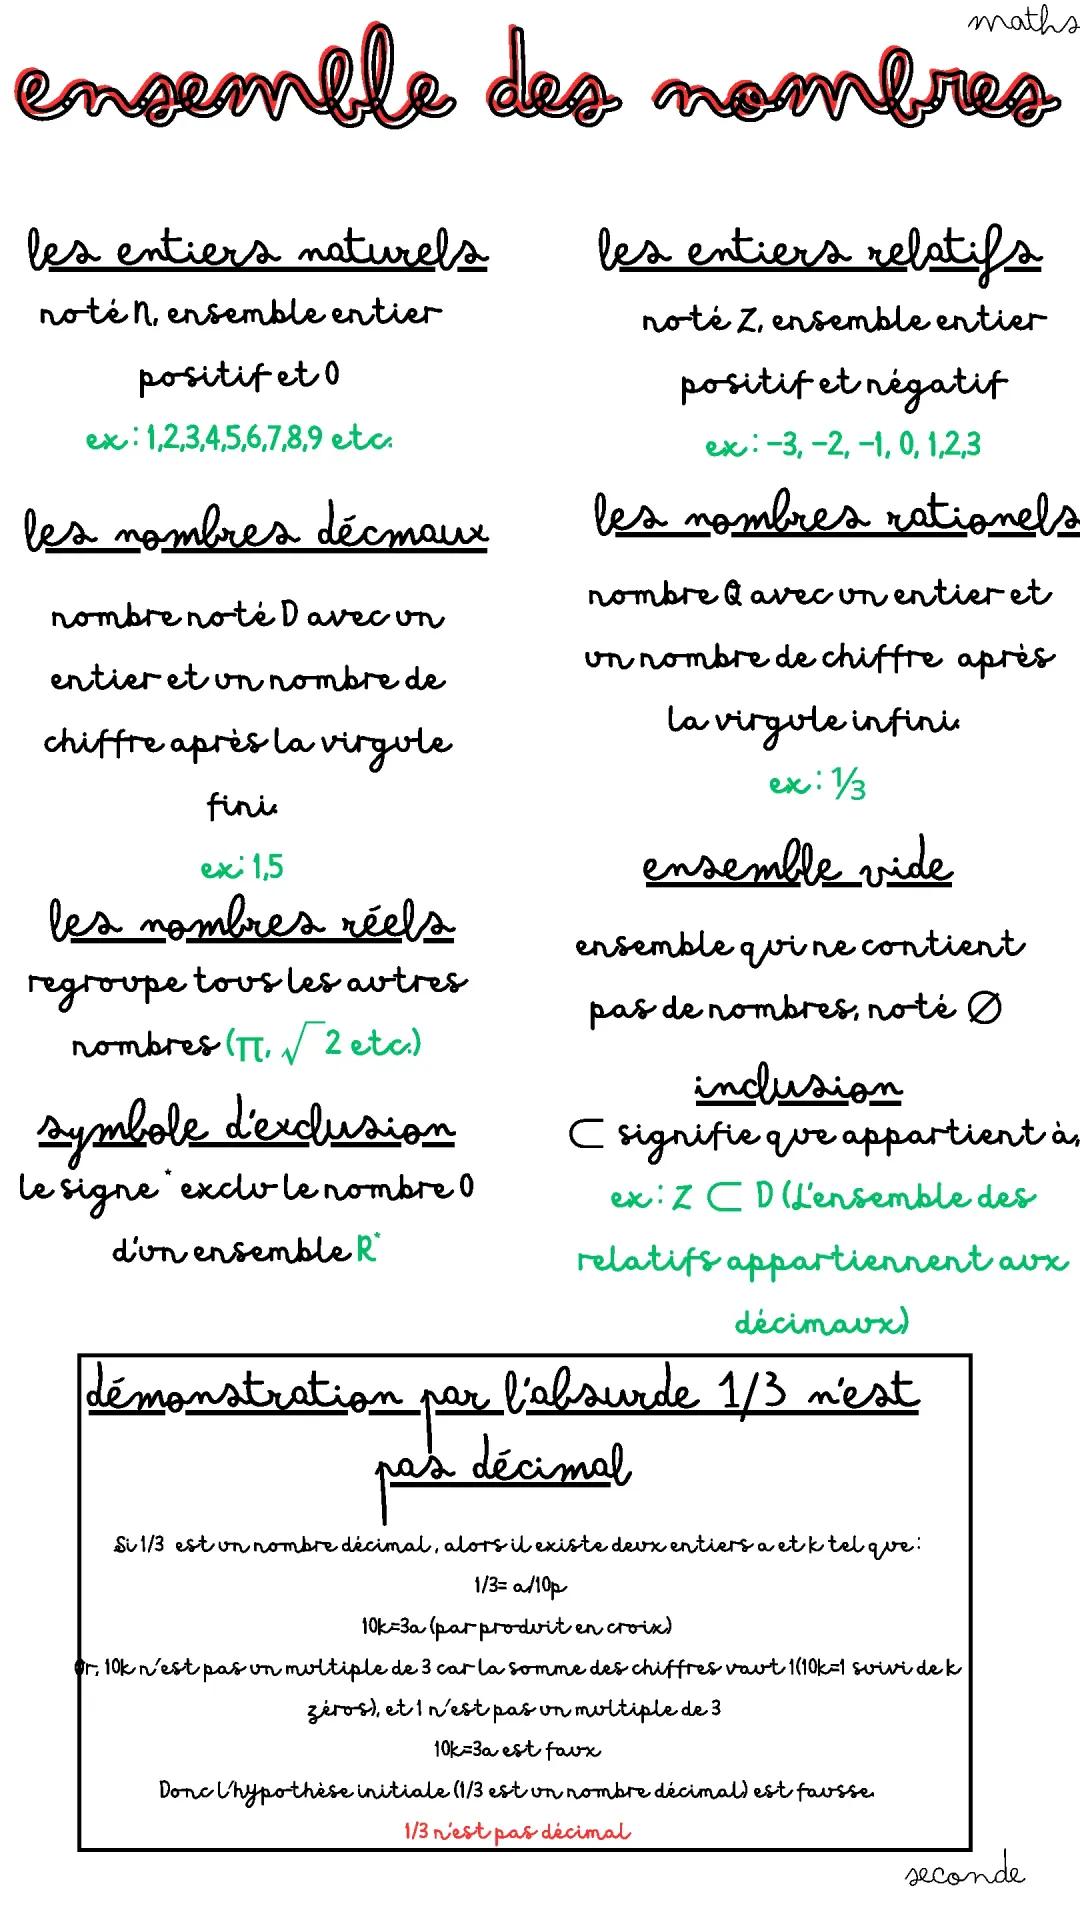 maths
ensemble des nombres
les entiers naturels
noté N, ensemble entier
positif et 0
ex : 1,2,3,4,5,6,7,8,9 etc.
les nombres décmaux
nombre noté D avec un
entier et un nombre de
chiffre après la virgule
fini.
ex: 1,5
les nombres réels
regroupe tous les autres
nombres (π, √2 etc.)
symbole d'exclusion
le signe * exclu le nombre 0
d'un ensemble R*
les entiers relatifs
noté Z, ensemble entier
positif et négatif
ex : -3, -2, -1, 0, 1,2,3
les nombres rationels
nombre Q avec un entier et
un nombre de chiffre après
la virgule infini.
ex : ⅓
ensemble vide
ensemble qui ne contient
pas de nombres, noté ∅
inclusion
⊂ signifie que appartient à,
ex : Z ⊂ D (L'ensemble des
relatifs appartiennent aux
décimaux)
démonstration par l'absurde 1/3 n'est
pas décimal
Si 1/3 est un nombre décimal, alors il existe deux entiers a et k tel que :
1/3= a/10p
10k=3a (par produit en croix)
Or, 10k n'est pas un multiple de 3 car la somme des chiffres vaut 1(10k=1 suivi de k
zéros), et 1 n'est pas un multiple de 3
10k=3a est faux
Donc l'hypothèse initiale (1/3 est un nombre décimal) est fausse.
1/3 n'est pas décimal
seconde